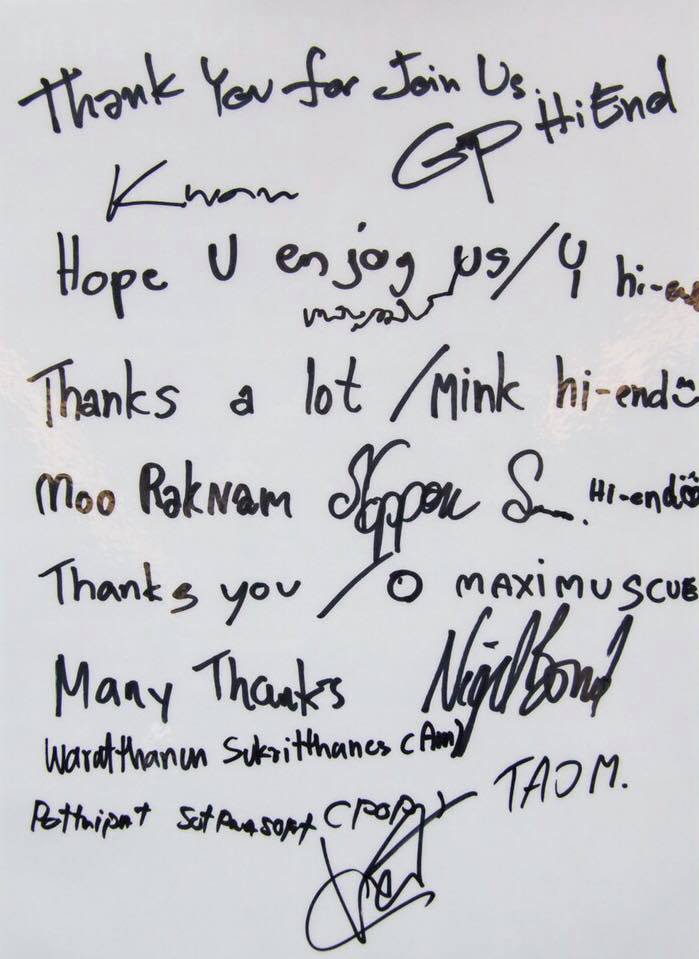 Thank You for Join Us. HiEnd
Kwan GP
Hope U enjoy us/Y hi-en
Thanks a lot /Mink hi-end
Moo RakNam Hi-end
Thanks you / O MAXIMUSCUE
Many Thanks Nigel Bond
Waratthanun Sukritthanes (Am)
(POP)
TAO M.